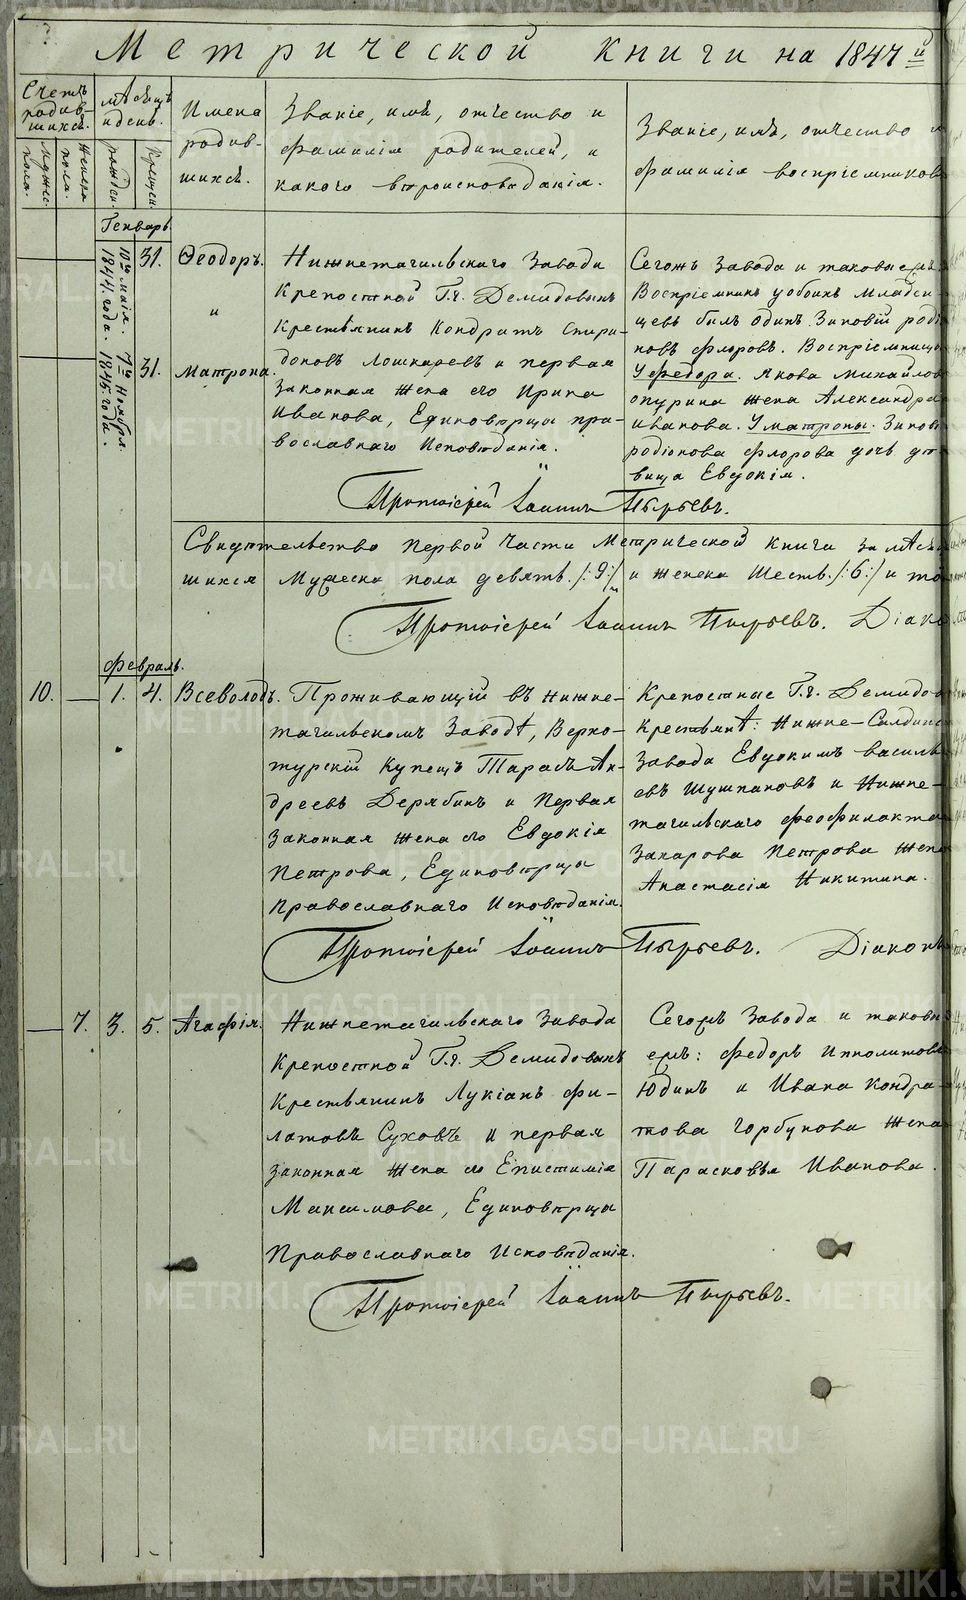 Метрической книги на 1847й
Счетъ родив-шихся.
мужес. пола.
женска пола.
мѣсяцъ и день.
рожден.
крещен.
Имена родив-шихся.
Званіе, имя, отчество и
фамилія родителей, и
какого вѣроисповѣданія.
Званіе, имя, отчество и
фамилія воспріемников
Генварь.
10го маія. 1844. года.
31.
Ѳеодоръ.
и
7го Ноября 1845. года.
31.
Матрона.
Нижнетагильскаго Завода
крепостной Г.г. Демидовыхъ
крестьянинъ Кондратъ Спири-
доновъ Лошкаревъ и первая
законная жена его Ирина
Иванова, Единовѣрцы пра-
вославнаго Исповѣданія.
Сегожъ Завода и таковыежъ
Воспріемникъ у обоихъ младен-
цевъ былъ одинъ. Зиновій родіо
новъ флоровъ. Воспріемницы
У федора. Якова Михайлов
опурина жена Александра
иванова. У матроны. Зинов
родіонова флорова дочь дѣ
вица Евдокія.
Протоіерей Іоаннъ Пырьевъ.
Свидѣтельство первой части Метрической книги за мѣся
шихся мужеска пола девять. /:9:/ и женска шесть. /:6:/ и то
Протоіерей Іоаннъ Пырьевъ. Діако
февраль.
10.
1.
4.
Всеволодъ.
Проживающій въ нижне-
тагильскомъ Заводѣ, Верхо-
турскій купецъ Тарасъ Ан-
дреевъ Дерябинъ и Первая
законная жена его Евдокія
Петрова, Единовѣрцы
православнаго Исповѣданія.
Крепостные Г.г. Демидо
крестьянѣ: Нижне-Салдинс
Завода Евдокимъ василь
евъ Шушпановъ и Нижне-
тагильскаго феофилакта
Захарова Петрова жена
Анастасія Никитина.
Протоіерей Іоаннъ Пырьевъ. Діаконъ
7.
3.
5.
Агафія.
Нижнетагильскаго Завода
крепостной Г.г. Демидовыхъ
крестьянинъ Лукіанъ фи-
латовъ Суховъ и первая
законная жена его Епистимія
Максимова, Единовѣрцы
Православнаго Исповѣданія.
Сегожъ Завода и таковы
ежъ: федоръ ипполитовъ
Юдинъ и Ивана кондра-
това горбунова жена
Парасковья Иванова.
Протоіерей Іоаннъ Пырьевъ.
METRIKI.GASO-URAL.RU